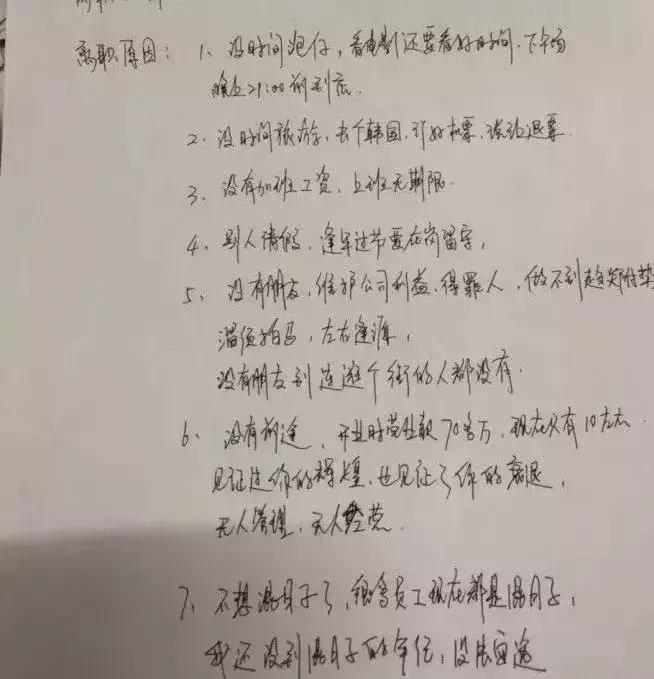 离职原因：1、没时间泡仔，看电影还要看好时间，下午场
难赶21:00前到店。
2、没时间旅游，去个韩国，订好机票，被迫退票.
3、没有加班工资，上班无期限.
4、别人请假，逢年过节要在岗留守，
5、没有朋友，维护公司利益，得罪人，做不到趋炎附势
溜须拍马，左右逢源，
没有朋友到连逛个街的人都没有.
6、没有前途，开业时营业款70多万，现在只有10左右
见证过你的辉煌，也见证了你的衰退，
无人管理，无人经营.
7、不想混日子了，很多员工现在都是混日子，
我还没到混日子的年纪，没法逗逼